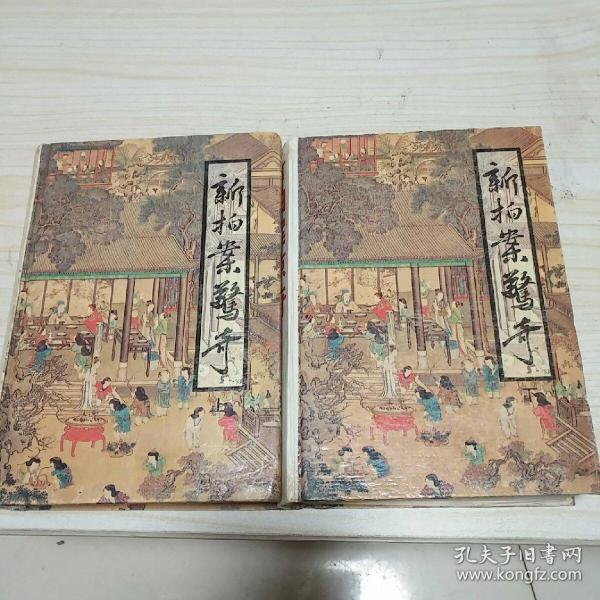 新拍案驚奇
上
新拍案驚奇
孔夫子旧书网
www.kongfz.com